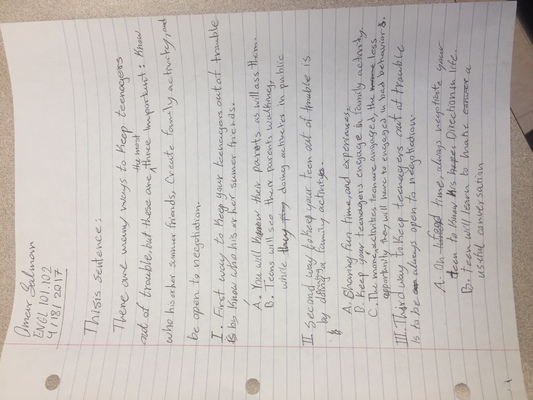 Omar Salman
ENGL 101.102
4/18/2017
Thisis sentence:
There are many ways to keep teenagers
out of trouble, but these are the most three important: Know
who his or her summer friends, Create family activity, and
be open to negotiation.
I. First way to keep your teenagers out of trouble
is by Know who his or her sumer friends.
A. You will Know their parents as will ass them.
B. Teens will see their parents wathing,
while they doing activates in public
II. Second way to keep your teen out of trouble is
by in family activity.
A. Sharing fun, time, and experiences.
B. Keep your teenagers engage in family activity.
C. The more activities teen are engaged, the less
opportunity they will have to engaged in bad behaviors.
III. Third way to keep teenagers out of trouble
is to be always open to negotiation.
A. On time, always negotiate your
teen to Know his Directions in life.
B. teen will learn to make a
useful conversation